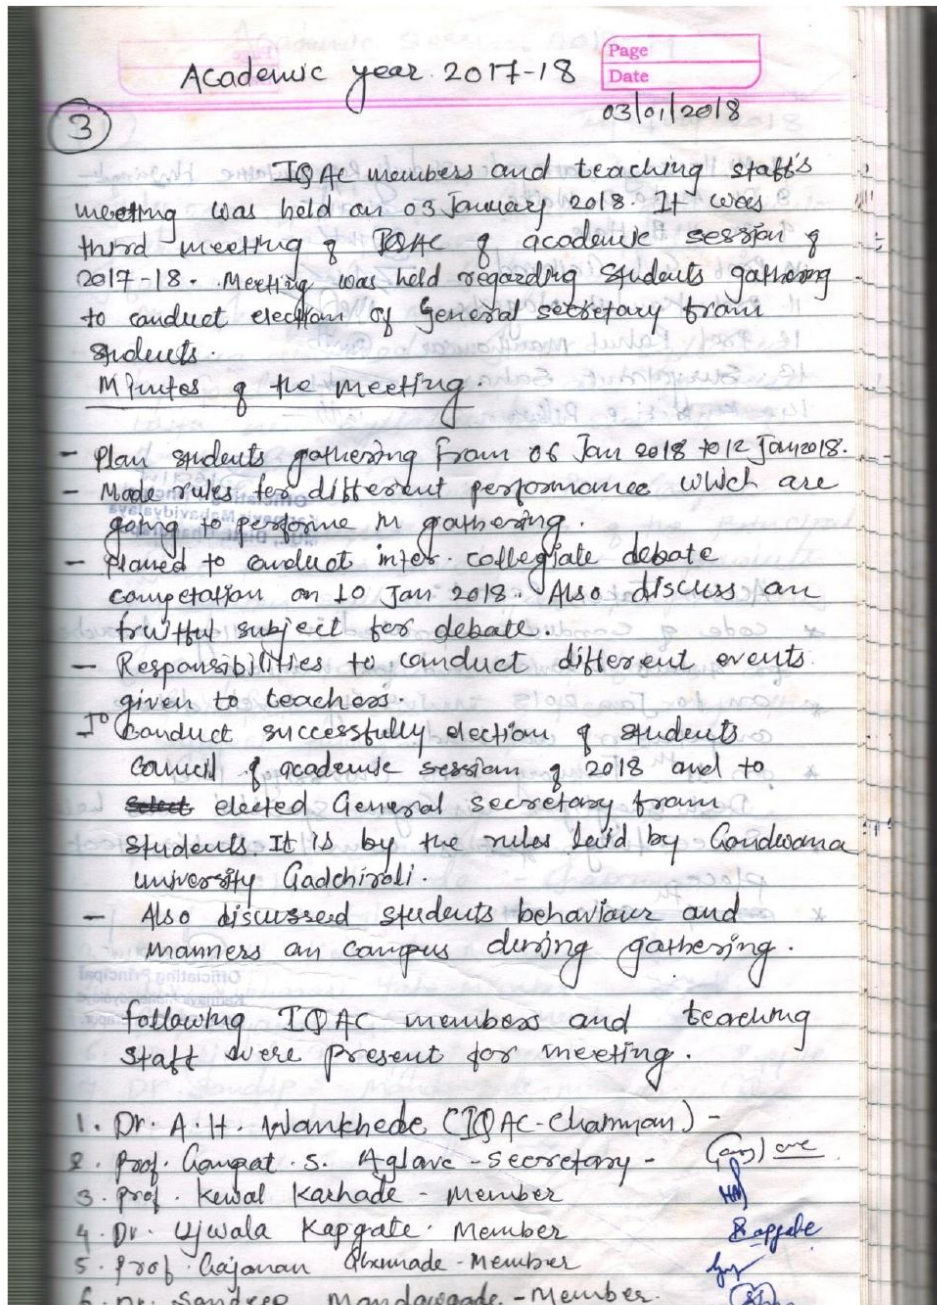 Academic year 2017-18
Page
Date
03/01/2018
3
IQAC members and teaching staff's
meeting was held on 03 January 2018. It was
third meeting of IQAC of academic session of
2017-18. Meeting was held regarding students gathering
to conduct election of General secretary from
students.
Minutes of the meeting.
- Plan students gathering from 06 Jan 2018 to 12 Jan 2018.
- Made rules for different performance which are
going to performe in gathering.
- planed to conduct inter collegiate debate
competation on 10 Jan 2018. Also discuss on
fruitful subject for debate.
- Responsibilities to conduct different events
given to teachers.
To conduct successfully election of students
council of academic session of 2018 and to
select elected General secretary from
students. It is by the rules laid by Gondwana
university Gadchiroli.
- Also discussed students behaviour and
manners on campus during gathering.
following IQAC members and teaching
staff were present for meeting.
1. Dr. A. H. Wankhede (IQAC-Chairman) -
2. Prof. Ganpat. S. Aglave - Secretary -
3. Prof. Kewal Karhade - Member
4. Dr. Ujwala Kapgate. Member
5. Prof. Gajanan - Member
6. Dr. Sandeep - Member.